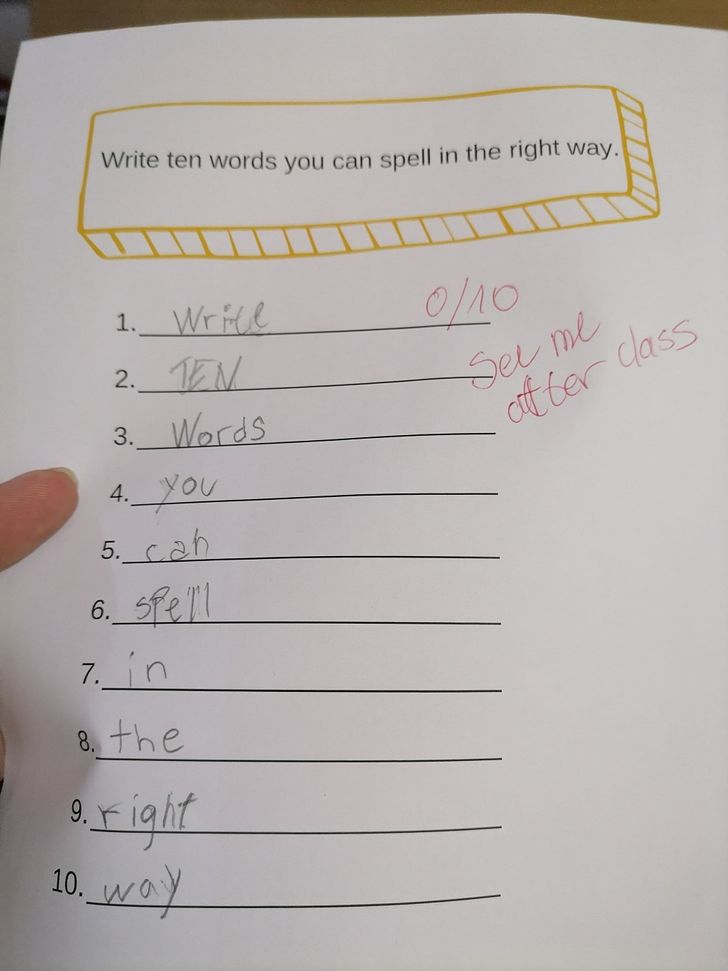 Write ten words you can spell in the right way.
1. Write
0/10
2. TEN
See me
after class
3. Words
4. you
5. can
6. spell
7. in
8. the
9. right
10. way